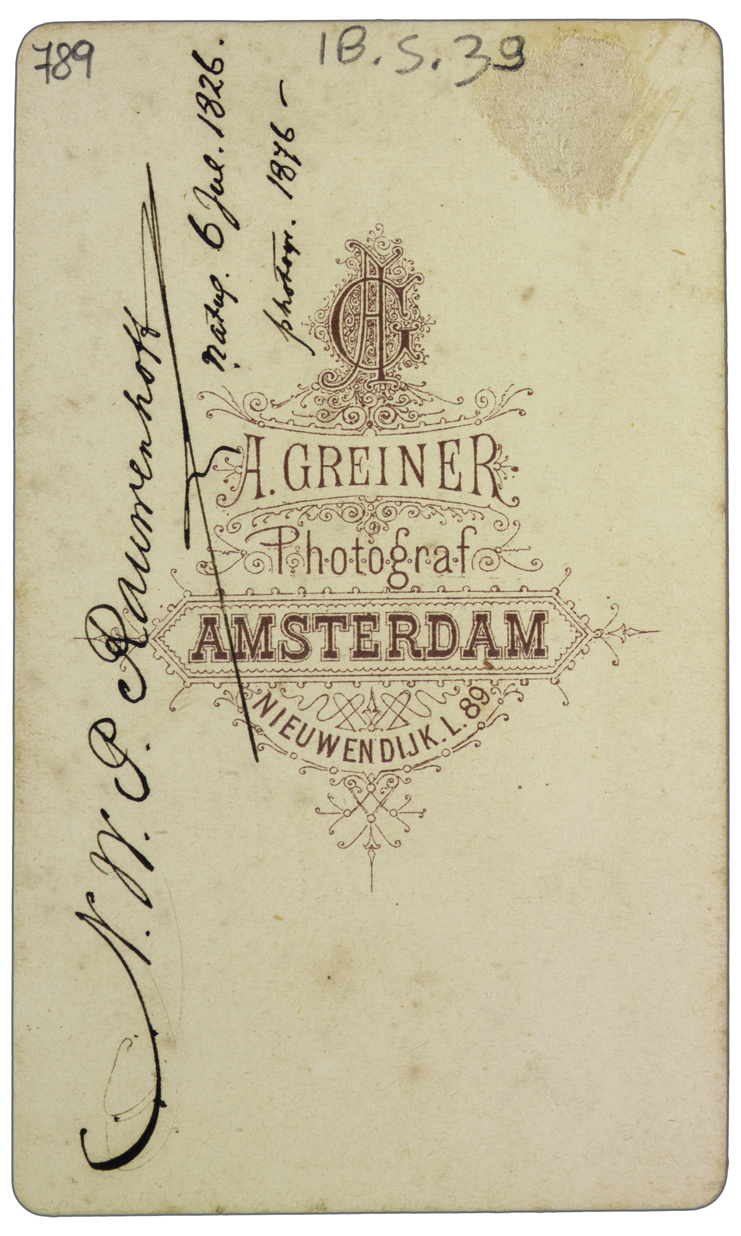 789
IB.S.39
N. W. P. Rauwenhoff
natus. 6 Jul. 1826.
photogr. 1876 –
AG
A. GREINER
Photograf
AMSTERDAM
NIEUWENDIJK. L. 89